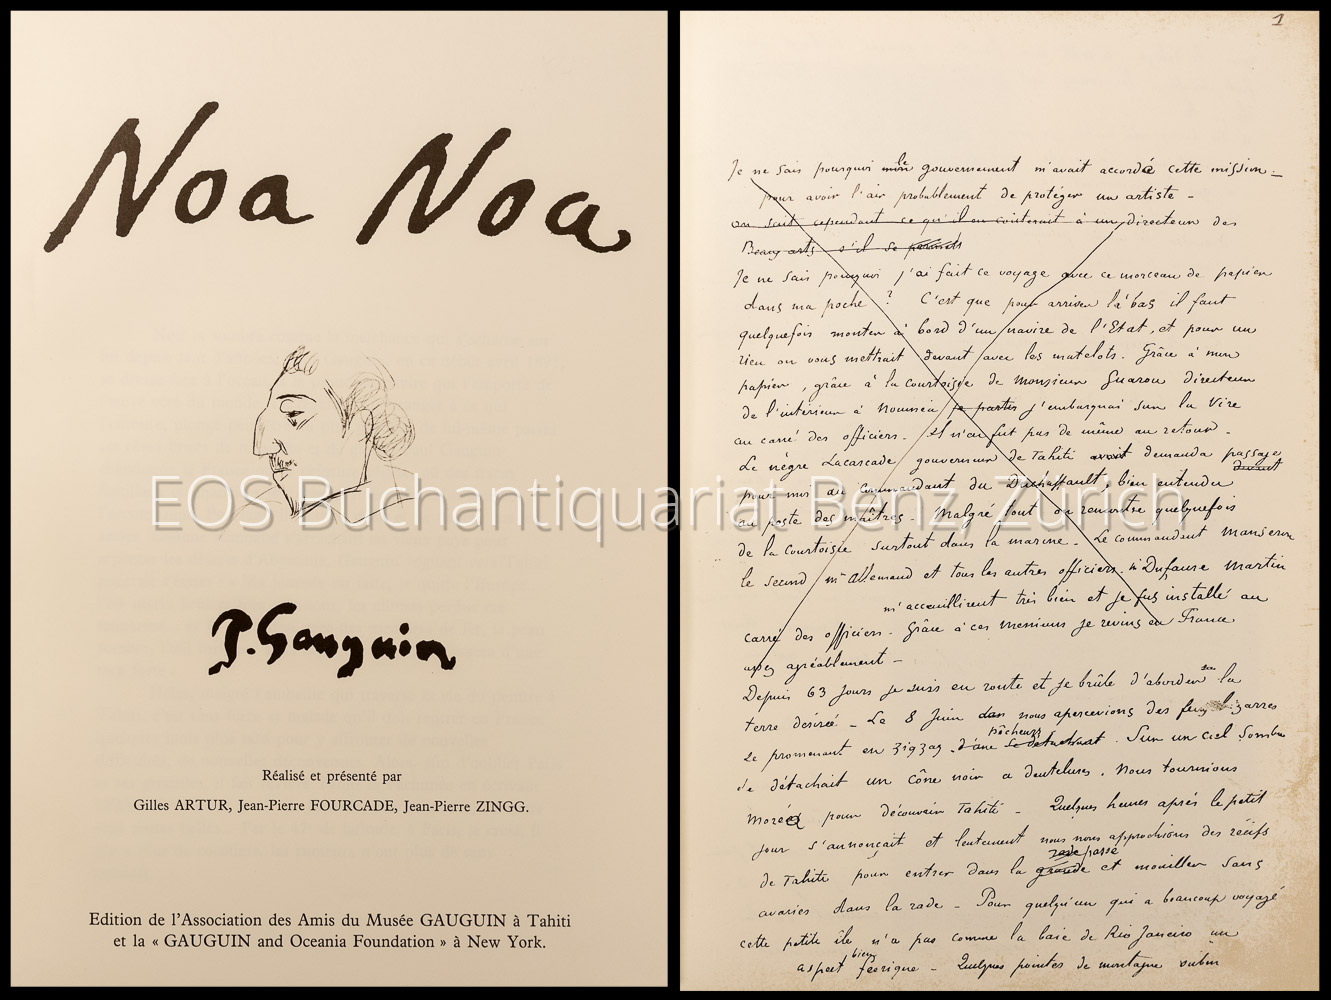 Noa Noa
P. Gauguin
Réalisé et présenté par
Gilles ARTUR, Jean-Pierre FOURCADE, Jean-Pierre ZINGG.
Edition de l'Association des Amis du Musée GAUGUIN à Tahiti
et la « GAUGUIN and Oceania Foundation » à New York.
EOS Buchantiquariat Benz, Zürich
1
Je ne sais pourquoi le gouvernement m'avait accordé cette mission _
pour avoir l'air probablement de protéger un artiste -
on sait cependant ce qu'il en coûterait à un directeur des
Beaux arts s'il se
Je ne sais pourquoi j'ai fait ce voyage avec ce morceau de papier
dans ma poche ? C'est que pour arriver là bas il faut
quelquefois monter à bord d'un navire de l'Etat, et pour un
rien on vous mettrait devant avec les matelots. Grâce à mon
papier, grâce à la courtoisie de Monsieur Guarou directeur
de l'intérieur à Nouméa je partis j'embarquai sur la Vire
au carré des officiers. Il n'en fut pas de même au retour -
Le nègre Lacascade gouverneur de Tahiti avait demanda passage
pour moi au commandant du Duchaffault, bien entendu
au poste des maîtres. Malgré tout on rencontre quelquefois
de la courtoisie surtout dans la marine. Le commandant
le second mr Allemand et tous les autres officiers. mr Dufaure Martin
m'accueillirent très bien et je fus installé au
carré des officiers. Grâce à ces messieurs je revins en France
assez agréablement -
Depuis 63 jours je suis en route et je brûle d'aborder sur la
terre désirée - Le 8 Juin nous apercevions des feux bizarres
se promenant en zigzag. pêcheurs Sur un ciel sombre
se détachait un cône noir a dentelures. Nous tournions
Moréa pour découvrir Tahiti - Quelques heures après le petit
jour s'annonçait et lentement nous nous approchions des récifs
de Tahiti pour entrer dans la passe et mouiller sans
avaries dans la rade - Pour quelqu'un qui a beaucoup voyagé
cette petite île n'a pas comme la baie de Rio Janeiro un
aspect bien féerique - Quelques pointes de montagne